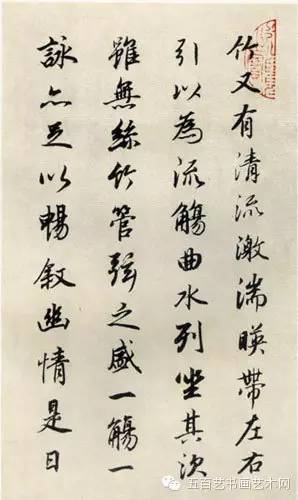 竹又有清流激湍暎帶左右
引以為流觴曲水列坐其次
雖無絲竹管弦之盛一觴一
詠亦足以暢敘幽情是日
五百艺书画艺术网